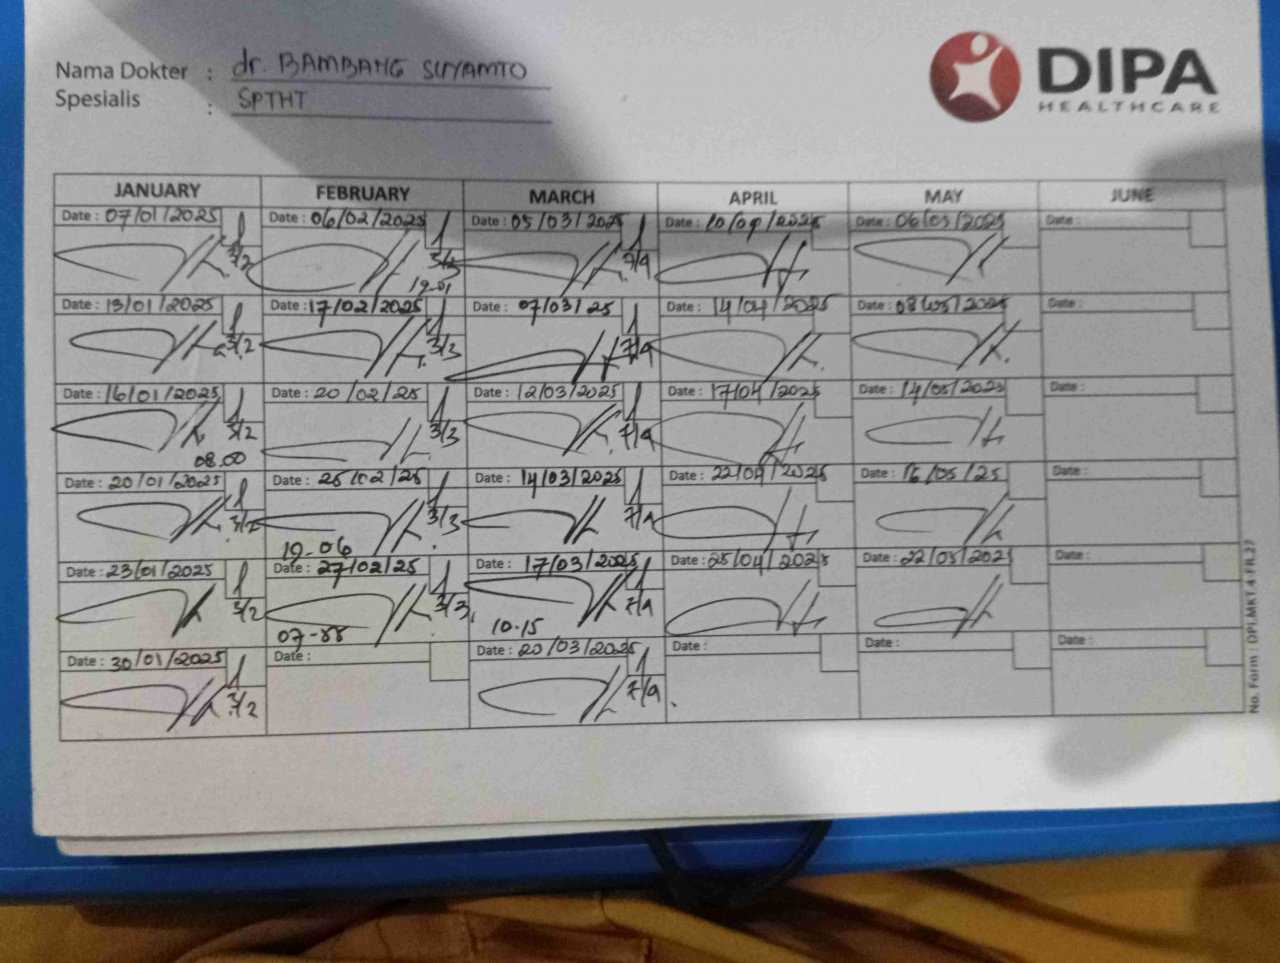 Nama Dokter : dr. BAMBANG SUYAMTO
Spesialis : SPTHT
DIPA
HEALTHCARE
JANUARY FEBRUARY MARCH APRIL MAY JUNE
Date : 07/01/2025 Date : 06/02/2025 Date : 05/03/2025 Date : 10/04/2025 Date : 06/05/2025 Date :
3/2 3/3 7/4
19.01
Date : 13/01/2025 Date : 17/02/2025 Date : 07/03/25 Date : 14/04/2025 Date : 08/05/2025 Date :
3/2 3/3 7/4
Date : 16/01/2025 Date : 20/02/25 Date : 12/03/2025 Date : 17/04/2025 Date : 14/05/2025 Date :
3/2 3/3 7/4
08.00
Date : 20/01/2025 Date : 25/02/25 Date : 14/03/2025 Date : 22/04/2025 Date : 16/05/25 Date :
3/2 3/3 7/4
19-06
Date : 23/01/2025 Date : 27/02/25 Date : 17/03/2025 Date : 25/04/2025 Date : 22/05/2025 Date :
3/2 3/3 7/4
07-55 10.15
Date : 30/01/2025 Date : Date : 20/03/2025 Date : Date : Date :
3/2 7/4
No. Form : DPI.MKT.4.FR.27